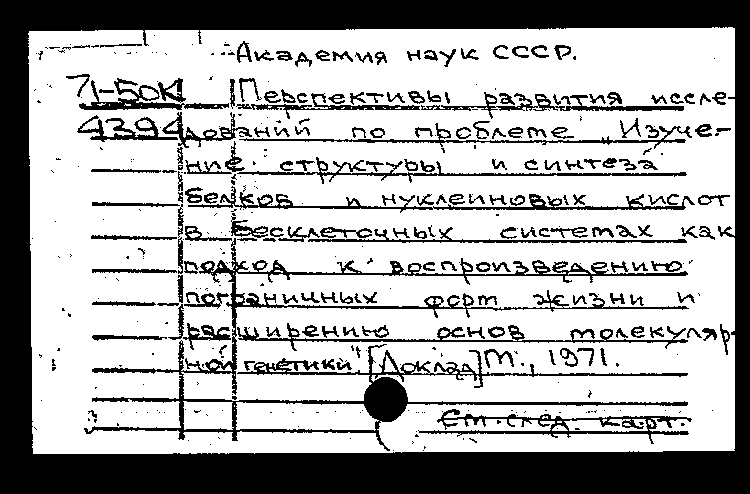 Академия наук СССР.
71-50К Перспективы развития иссле-
4394 дований по проблеме "Изуче-
ние структуры и синтеза
белков и нуклеиновых кислот
в бесклеточных системах как
подход к воспроизведению
пограничных форм жизни и
расширению основ молекуляр-
ной генетики". [Доклад] М., 1971.
См. след. карт.